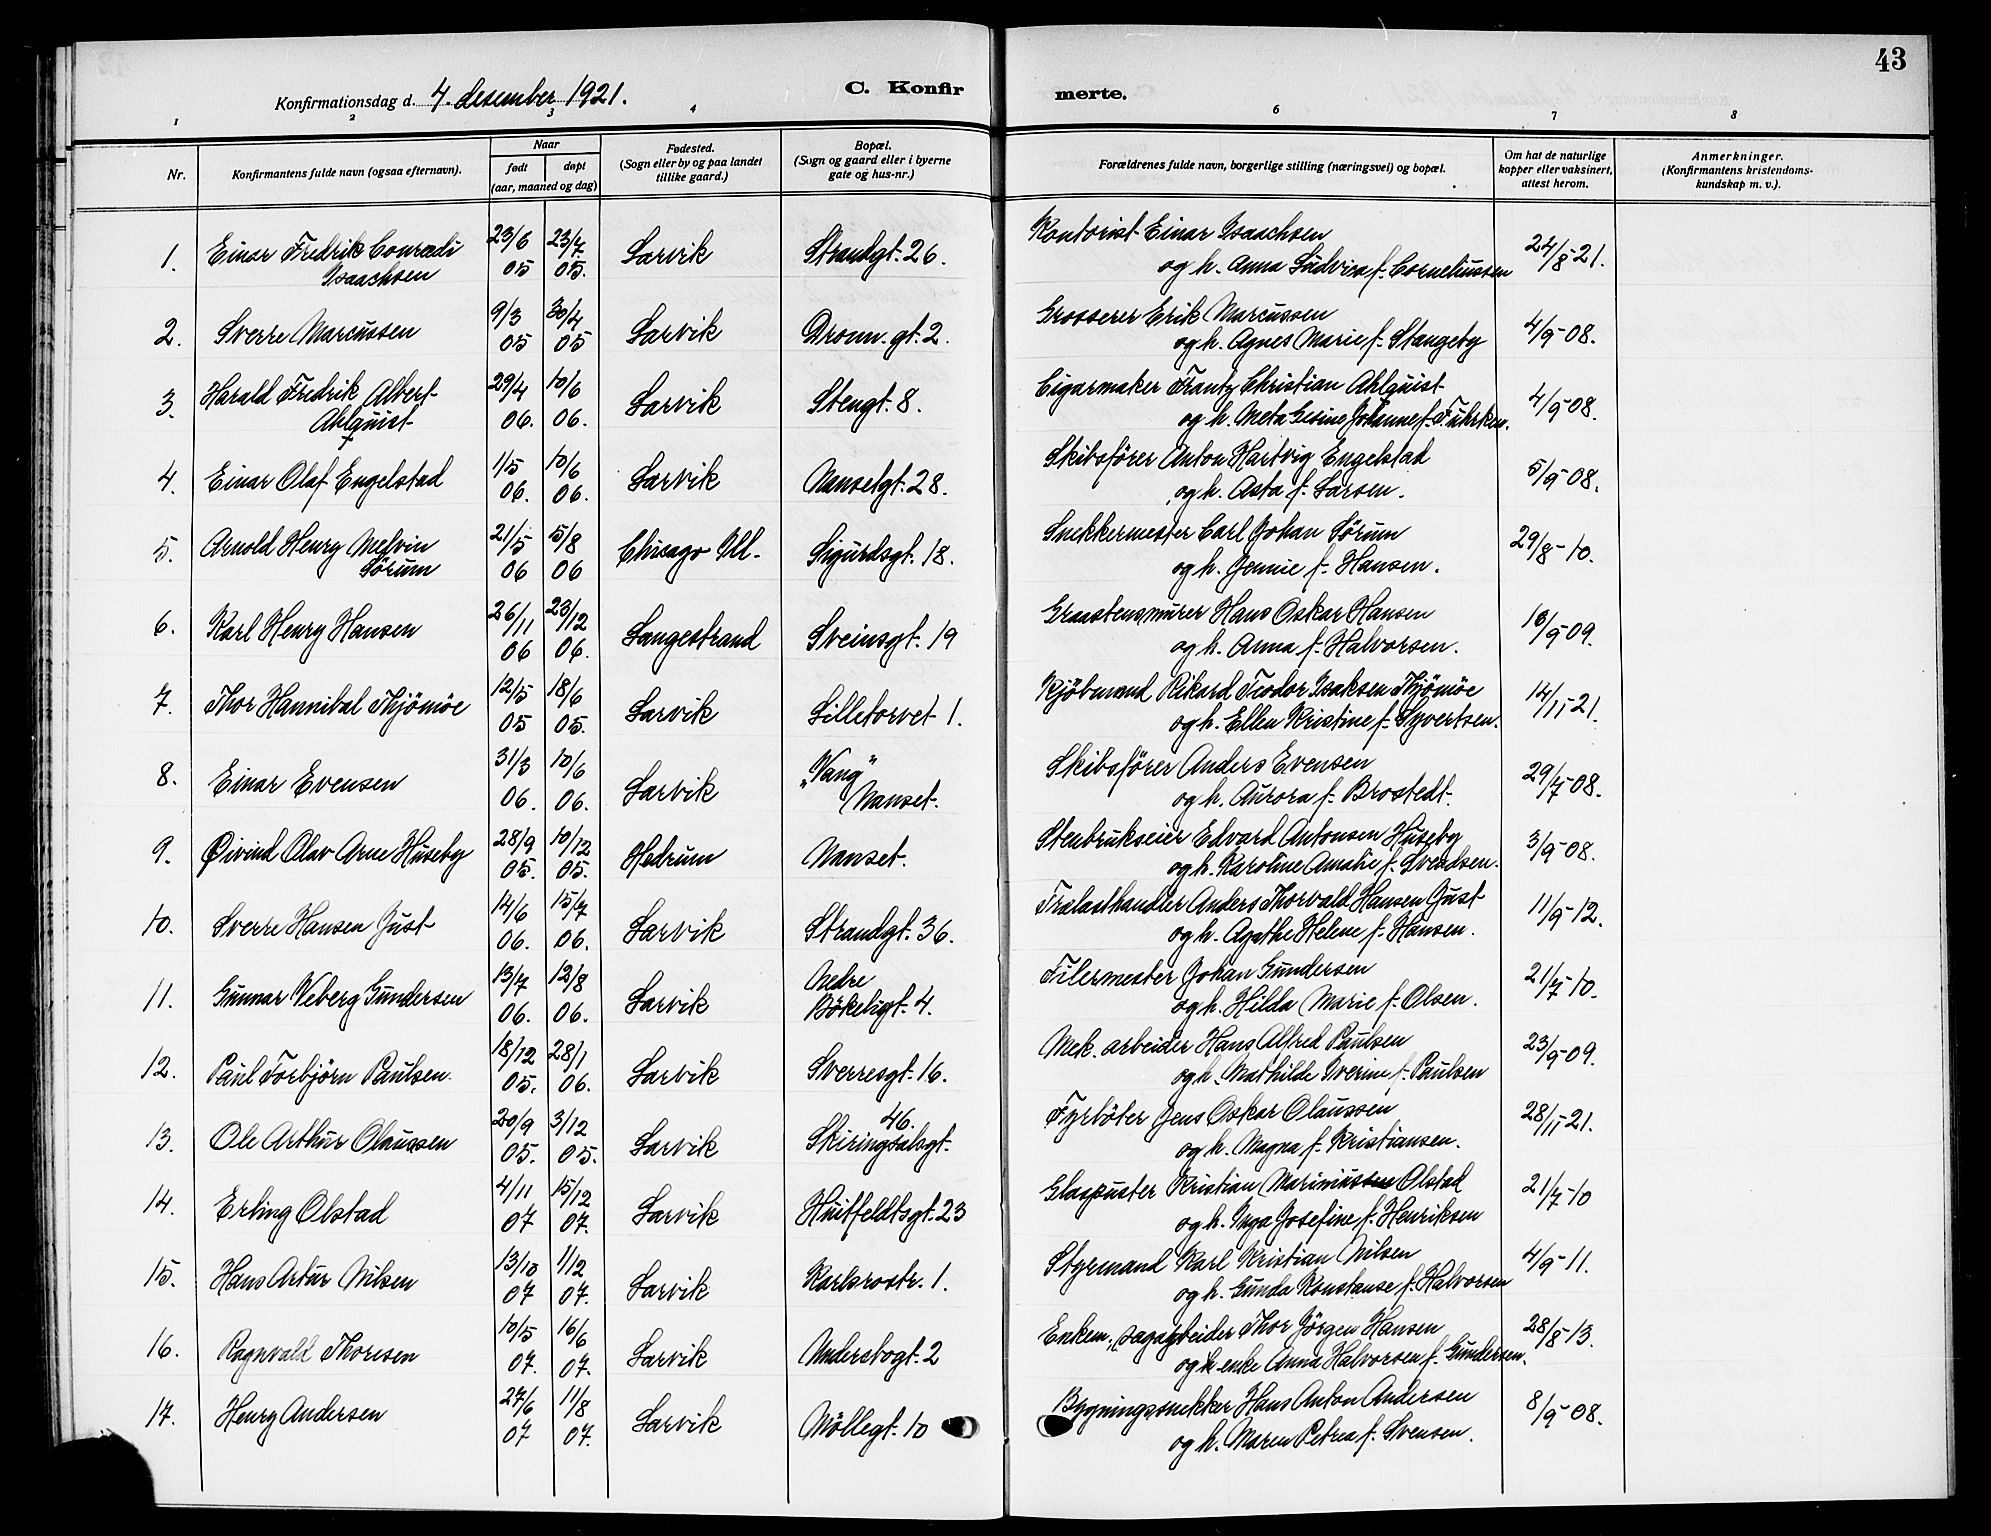 43
Konfirmationsdag d. 4. desember 1921.
C. Konfirmerte.
1 2 3 4 6 7 8
Nr.
Konfirmantens fulde navn (ogsaa efternavn).
Naar
født
døpt
(aar, maaned og dag)
Fødested.
(Sogn eller by og paa landet
tillike gaard.)
Bopæl.
(Sogn og gaard eller i byerne
gate og hus-nr.)
Forældrenes fulde navn, borgerlige stilling (næringsvei) og bopæl.
Om hat de naturlige
kopper eller vaksinert,
attest herom.
Anmerkninger.
(Konfirmantens kristendoms-
kundskap m. v.).
1. Einar Fredrik Conradi
Isaachsen
23/6 05 23/7. 05. Larvik Strandgt. 26.
Kontorist Einar Isaachsen
og h. Anna Ludvica f. Corneliussen
24/8-21.
2. Sverre Marcussen
9/3 05 30/4 05 Larvik Dronn. gt. 2.
Grosserer Erik Marcussen
og h. Agnes Marie f. Stangeby
4/9-08.
3. Harald Fredrik Albert
Ahlquist
29/4 06. 10/6 06. Larvik Stengt. 8.
Cigarmaker Frantz Christian Ahlquist
og h. Meta Gesine Johanne f. Fuhrken.
4/9-08.
4. Einar Olaf Engelstad
1/5 06. 10/6 06. Larvik Nansetgt. 28.
Skibsfører Anton Hartvig Engelstad
og h. Asta f. Larsen.
5/9-08.
5. Arnold Henry Melvin
Sörum
21/5 06 5/8 06 Chicago Ill. Sigurdsgt. 18.
Snekkermester Carl Johan Sörum
og h. Jennie f. Hansen.
29/8-10.
6. Karl Henry Hansen
26/11 06 23/12 06. Langestrand Sveinsgt. 19
Graastensmurer Hans Oskar Hansen
og h. Anna f. Halvorsen.
16/9-09.
7. Thor Hannibal Thjömöe
12/5 05 18/6 05. Larvik Lilletorvet 1.
Kjöbmand Rikard Teodor Isaksen Thjömöe
og h. Ellen Kristine f. Syvertsen.
14/11-21.
8. Einar Evensen
31/3 06. 10/6 06. Larvik „Vang”
Nanset.
Skibsförer Anders Evensen
og h. Aurora f. Brostedt.
29/7-08.
9. Øivind Olav Arne Huseby
28/9 05. 10/12 05. Hedrum Nanset.
Stenbrukseier Edvard Antonsen Huseby
og h. Karoline Amalie f. Svendsen.
3/9-08.
10. Sverre Hansen Just
14/6 06. 15/7 06. Larvik Strandgt. 36.
Trælasthandler Anders Thorvald Hansen Just
og h. Agathe Helene f. Hansen.
11/9-12.
11. Gunnar Veberg Gundersen
13/7 06. 12/8 06. Larvik Nedre
Bökeligt. 4.
Filermester Johan Gundersen
og h. Hilda Marie f. Olsen.
21/7-10.
12. Paul Torbjörn Paulsen.
18/12 05. 28/1 06. Larvik Sverresgt. 16.
Mek. arbeider Hans Alfred Paulsen
og h. Mathilde Iverine f. Paulsen
23/9-09.
13. Ole Arthur Olaussen
20/9 05. 3/12 05. Larvik 46.
Skiringsalsgt.
Fyrböter Jens Oskar Olaussen
og h. Magna f. Kristiansen.
28/11-21.
14. Erling Olstad
4/11 07 15/12 07. Larvik Huitfeldtsgt. 23
Glaspuster Kristian Marinius Olstad
og h. Inga Josefine f. Henriksen
21/7-10
15. Hans Artur Nilsen
13/10 07 1/12 07. Larvik Karlsrostr. 1.
Styrmand Karl Kristian Nilsen
og h. Gunda Konstanse f. Halvorsen
4/9-11.
16. Ragnvald Thoresen
10/5 07. 16/6 07. Larvik Undersbogt. 2
Enkem., sagarbeider Thor Jörgen Hansen
og h. enke Anna Halvorsen f. Gundersen.
28/8-13.
17. Henry Andersen
27/6 07 11/8 07. Larvik Möllegt. 10
Bygningssnekker Hans Anton Andersen
og h. Maren Petrea f. Svensen.
8/9-08.